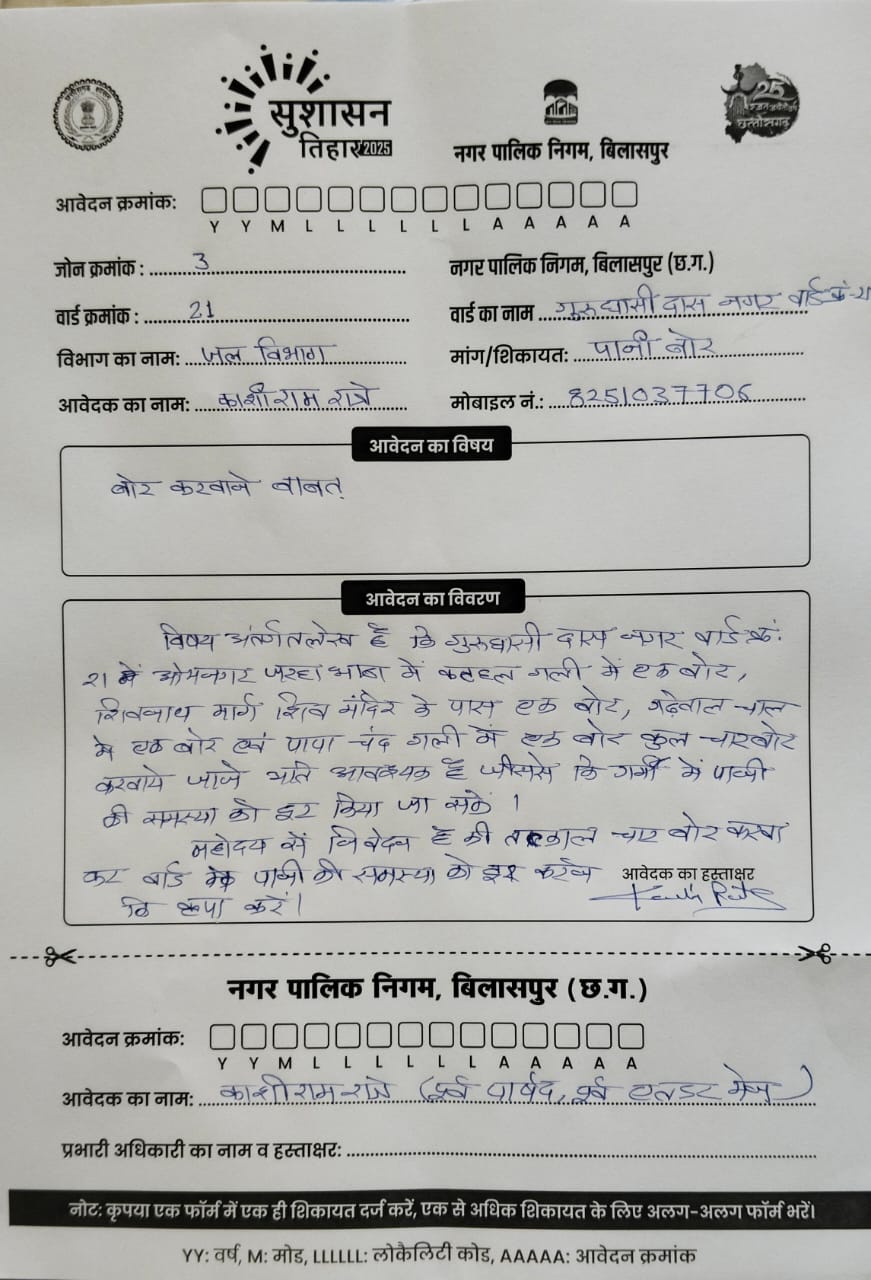 छत्तीसगढ़ शासन
सुशासन
तिहार 2025
नगर पालिक निगम, बिलासपुर
25
छत्तीसगढ़
आवेदन क्रमांक:
Y Y M L L L L L L A A A A A
जोन क्रमांक : 3
नगर पालिक निगम, बिलासपुर (छ.ग.)
वार्ड क्रमांक : 21
वार्ड का नाम गुरुघासी दास नगर वार्ड क्रं-21
विभाग का नाम: जल विभाग
मांग/शिकायत: पानी बोर
आवेदक का नाम: काशीराम रात्रे
मोबाइल नं.: 8251037706
आवेदन का विषय
बोर करवाने बाबत्
आवेदन का विवरण
विषय अंर्तगत लेख है कि गुरुघासी दास नगर वार्ड क्रं:
21 में ओमनगर जरहाभाठा में कटहल गली में एक बोर,
शिवनाथ मार्ग शिव मंदिर के पास एक बोर, गढ़ेवाल चाल
मे एक बोर एवं पापा चंद गली में एक बोर कुल चार बोर
करवाये जाने अति आवश्यक है जीससे कि गर्मी में पानी
की समस्या को दूर किया जा सकें ।
महोदय से निवेदन है की तत्काल चार बोर करवा
कर वार्ड पानी की समस्या को दूर करने
कि कृपा करें।
आवेदक का हस्ताक्षर
नगर पालिक निगम, बिलासपुर (छ.ग.)
आवेदन क्रमांक:
Y Y M L L L L L L A A A A A
आवेदक का नाम: काशीराम रात्रे (पूर्व पार्षद, पूर्व एल्डर मेन)
प्रभारी अधिकारी का नाम व हस्ताक्षर:
नोट: कृपया एक फॉर्म में एक ही शिकायत दर्ज करें, एक से अधिक शिकायत के लिए अलग-अलग फॉर्म भरें।
YY: वर्ष, M: मोड, LLLLLL: लोकैलिटी कोड, AAAAA: आवेदन क्रमांक